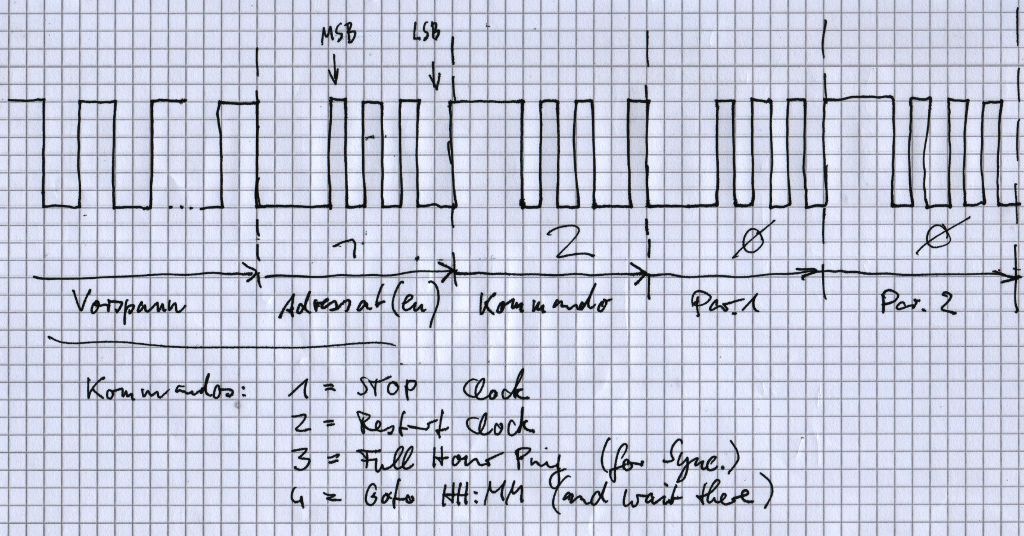 MSB LSB
1 2 Ø Ø
Vorspann Adressat(en) Kommando Par. 1 Par. 2
Kommandos: 1 = STOP Clock
2 = Restart Clock
3 = Full Hour Ping (for Sync.)
4 = Goto HH:MM (and wait there)